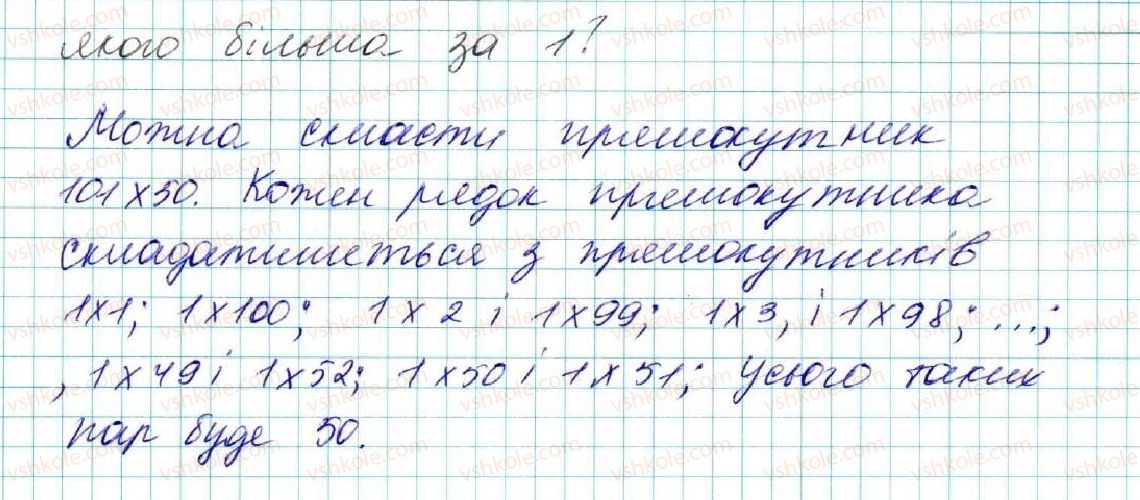 якого більша за 1?
Можна скласти прямокутник
101x50. Кожен рядок прямокутника
складатиметься з прямокутників
1x1; 1x100; 1x2 і 1x99; 1x3, і 1x98; ...;
, 1x49 і 1x52; 1x50 і 1x51; Усього таких
пар буде 50.